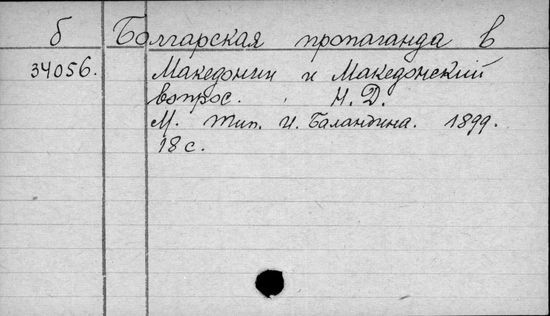 б Болгарская пропаганда в
34056. Македонии и Македонский
вопрос. Н. Д.
М. Тип. И. Баландина. 1899.
18 с.